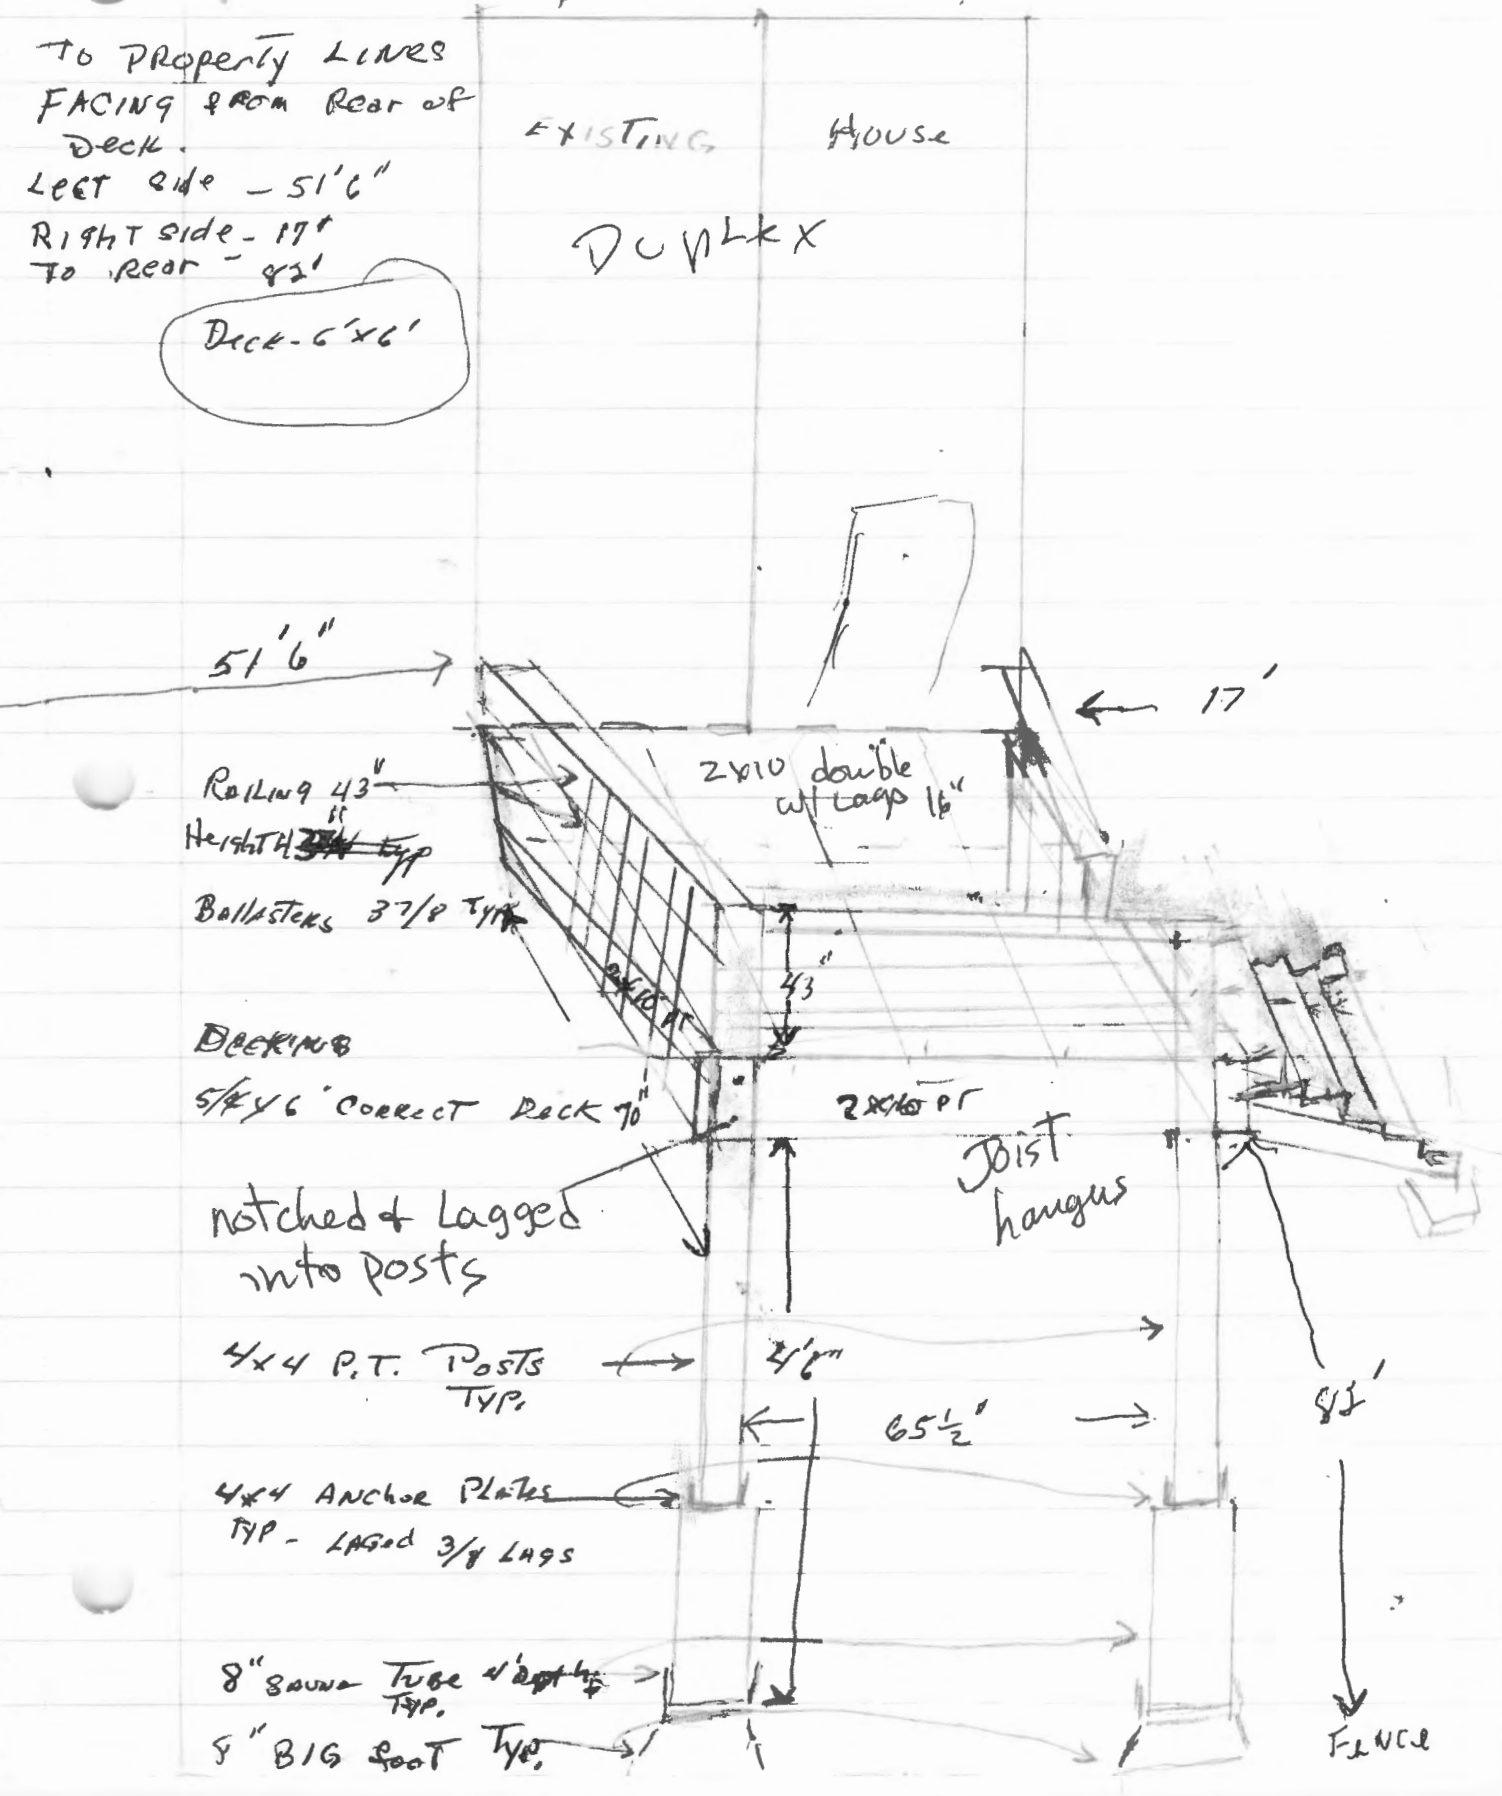 To Property Lines
Facing from Rear of
Deck.
Left side - 51'6"
Right side - 17'
To Rear - 82'
Deck - 6'x6'
Existing House
Duplex
51'6"
17'
2x10 double
w/ Lags 16"
Railing 43"
Height 43"
Ballasters 3 7/8 Typ
2x10 PT
43"
Decking
5/4 x 6 Correct Deck
70"
2x10 PT
Joist
hangus
notched & Lagged
into posts
4x4 P.T. Posts
Typ.
4'6"
65 1/2"
4x4 Anchor Plates
Typ - Laged 3/8 Lags
8" Tube 4'
Typ.
BIG foot Typ.
Fence